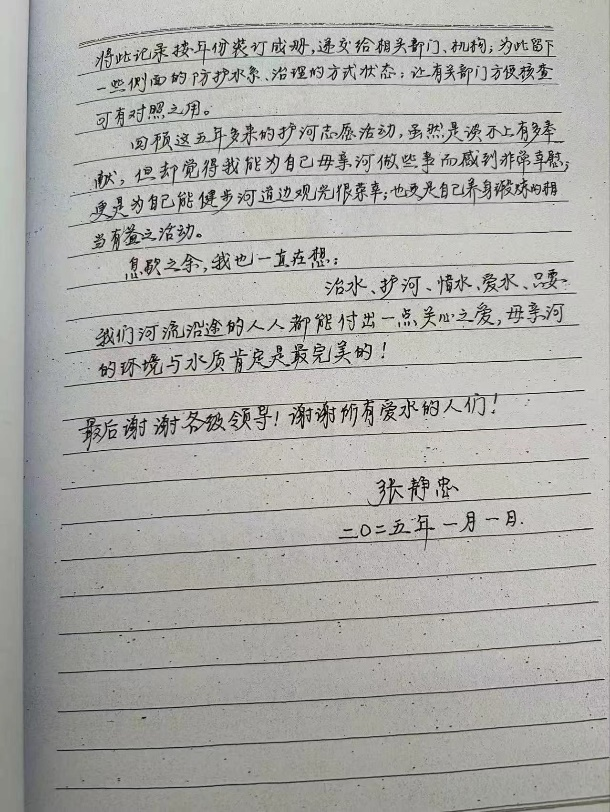 将此记录按年份装订成册,递交给相关部门、机构;为此留下
一些侧面的防护水系、治理的方式状态;让有关部门方便核查
可有对照之用。
回顾这五年多来的护河志愿活动,虽然是谈不上有多奉
献,但却觉得我能为自己母亲河做些事而感到非常幸慰;
更是为自己能健步河道边观光很荣幸;也更是自己养身锻炼的相
当有益之活动。
息歇之余,我也一直在想:
治水、护河、惜水、爱水、只要
我们河流沿途的人人都能付出一点关心之爱,母亲河
的环境与水质肯定是最完美的!
最后谢谢各级领导!谢谢所有爱水的人们!
张静忠
二〇二五年一月一日.